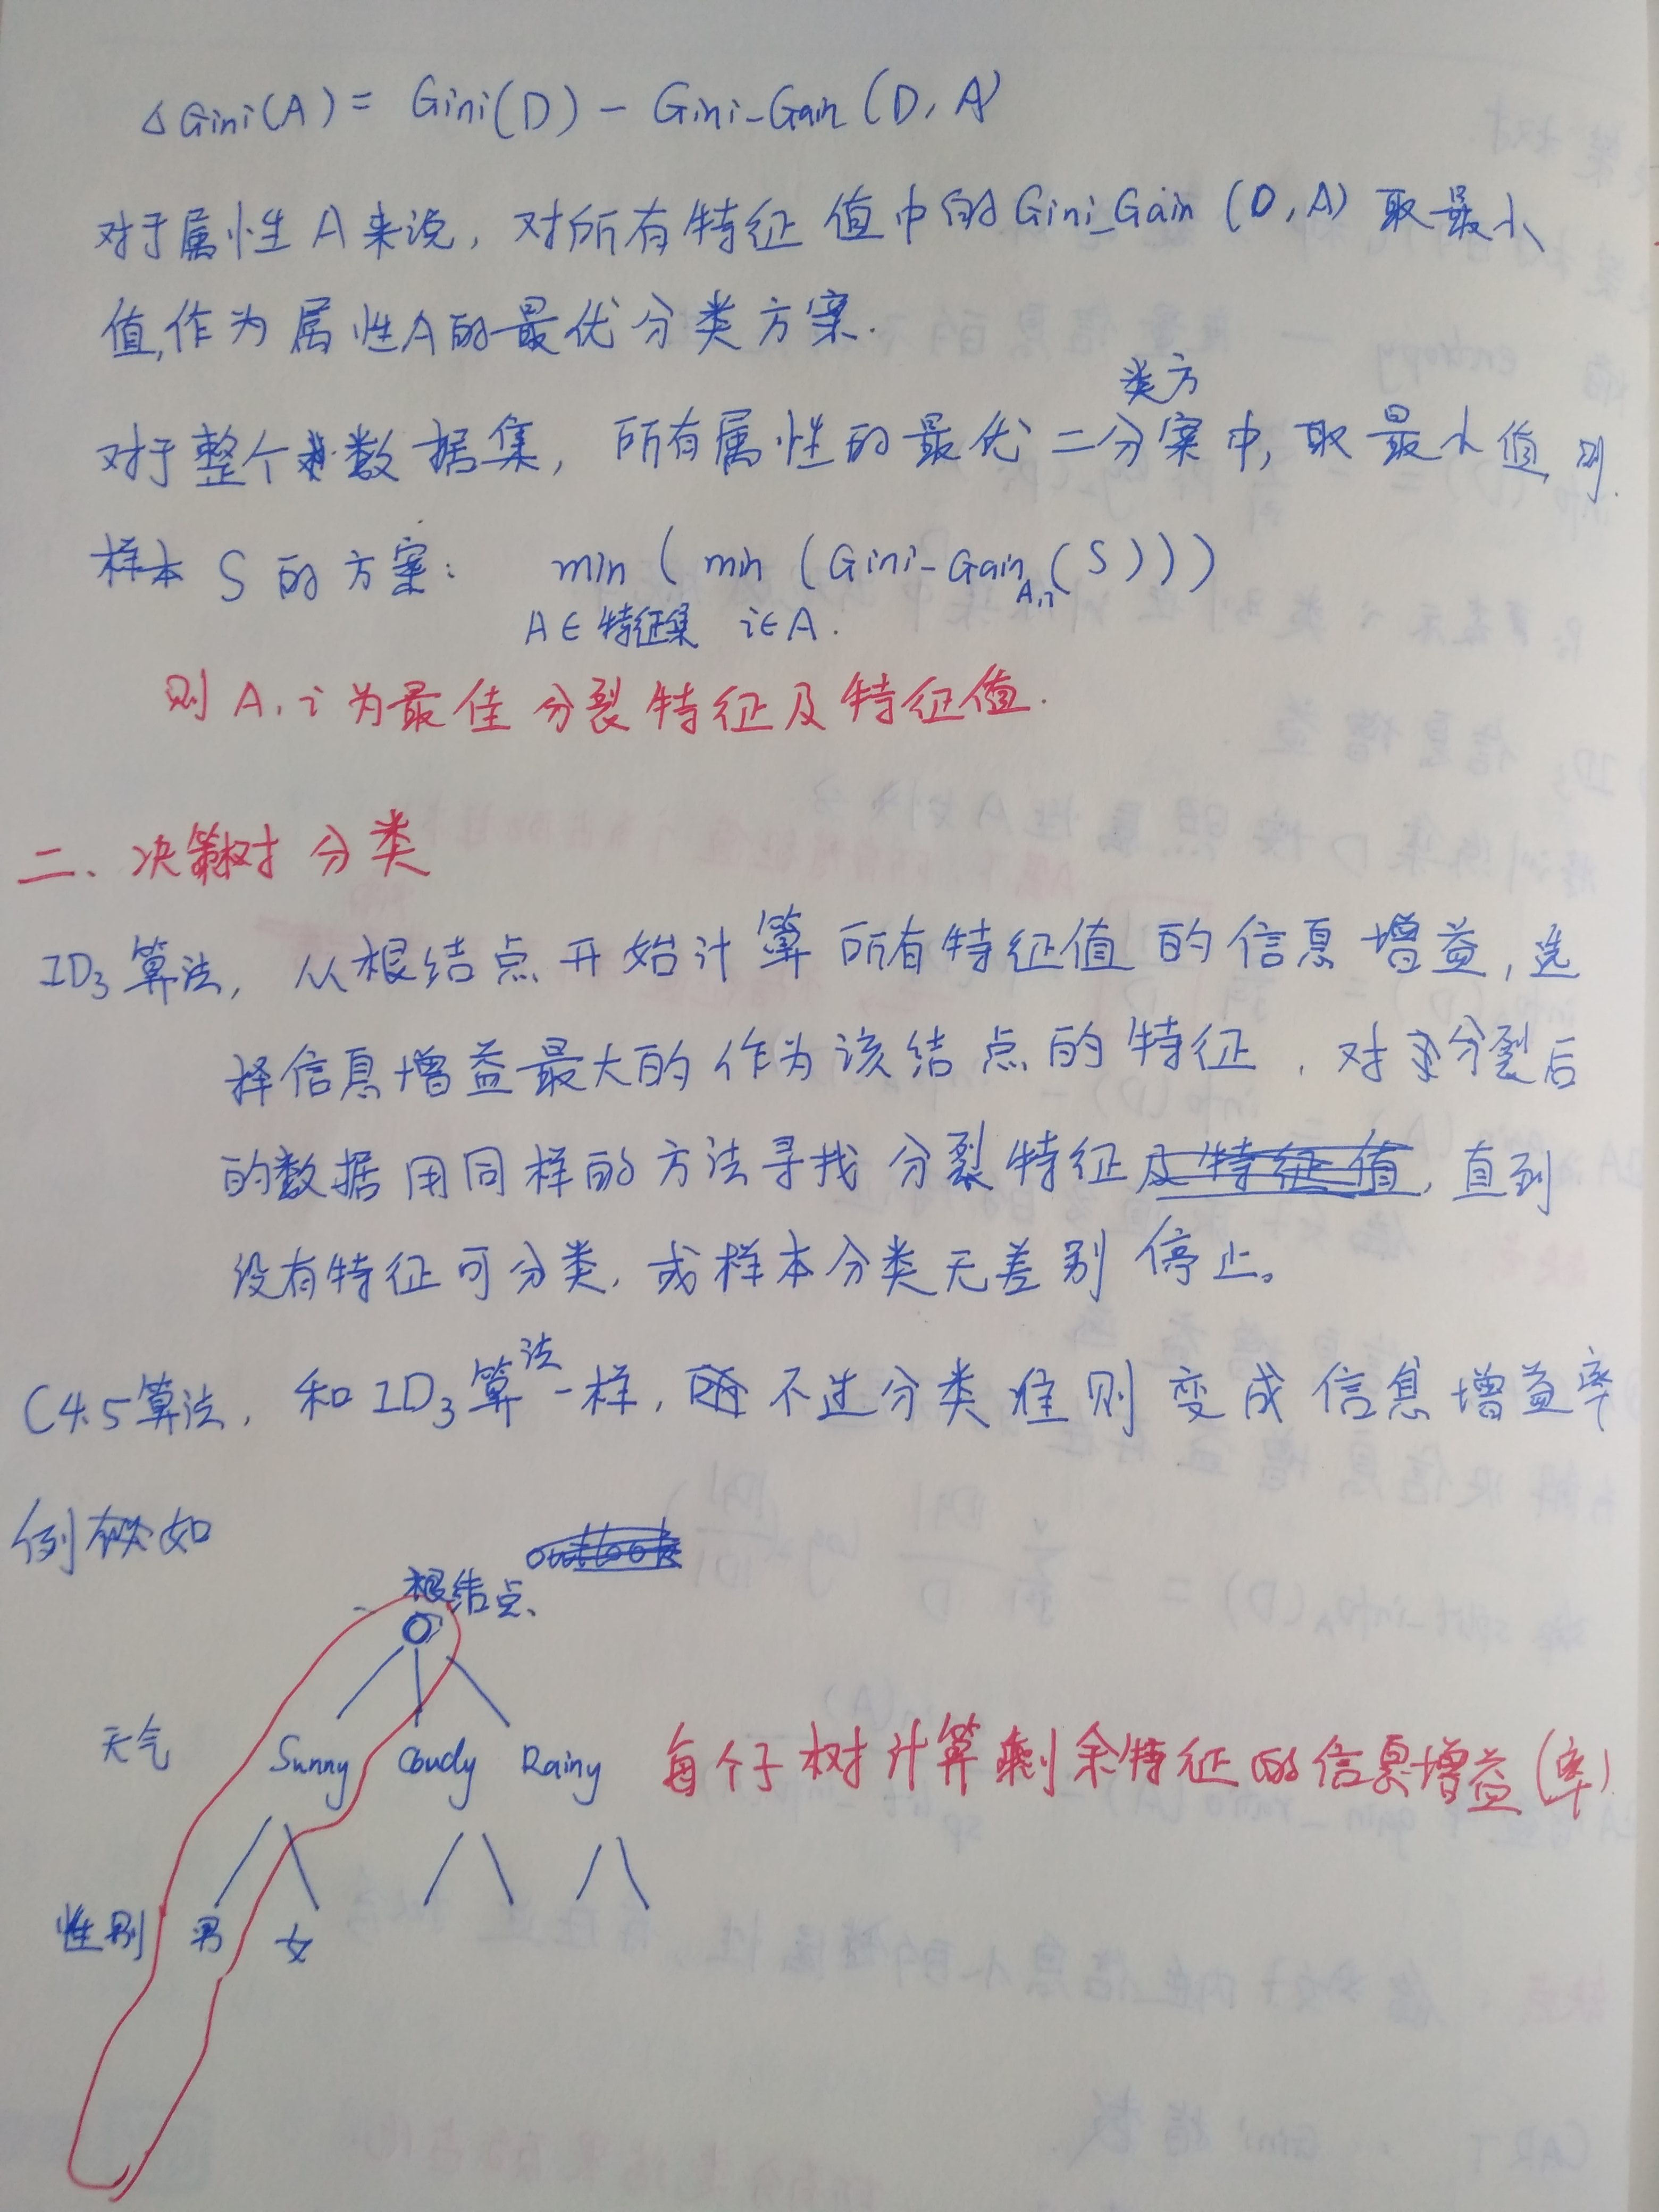 △Gini(A) = Gini(D) - Gini_Gain(D, A)
对于属性A来说, 对所有特征值中的Gini_Gain(D,A)取最小
值,作为属性A的最优分类方案.
对于整个数据集, 所有属性的最优二分类方案中,取最小值,则
样本S的方案: min(min(Gini-Gain A,i (S)))
A∈特征集 i∈A.
则A,i为最佳分裂特征及特征值.
二、决策树分类
ID3算法, 从根结点开始计算所有特征值的信息增益,选
择信息增益最大的作为该结点的特征,对分裂后
的数据用同样的方法寻找分裂特征及特征值,直到
没有特征可分类,或样本分类无差别停止。
C4.5算法, 和ID3算法一样, 不过分类准则变成信息增益率
例如
outlook
根结点
天气 Sunny Coudy Rainy 每个子树计算剩余特征的信息增益(率)
性别 男 女